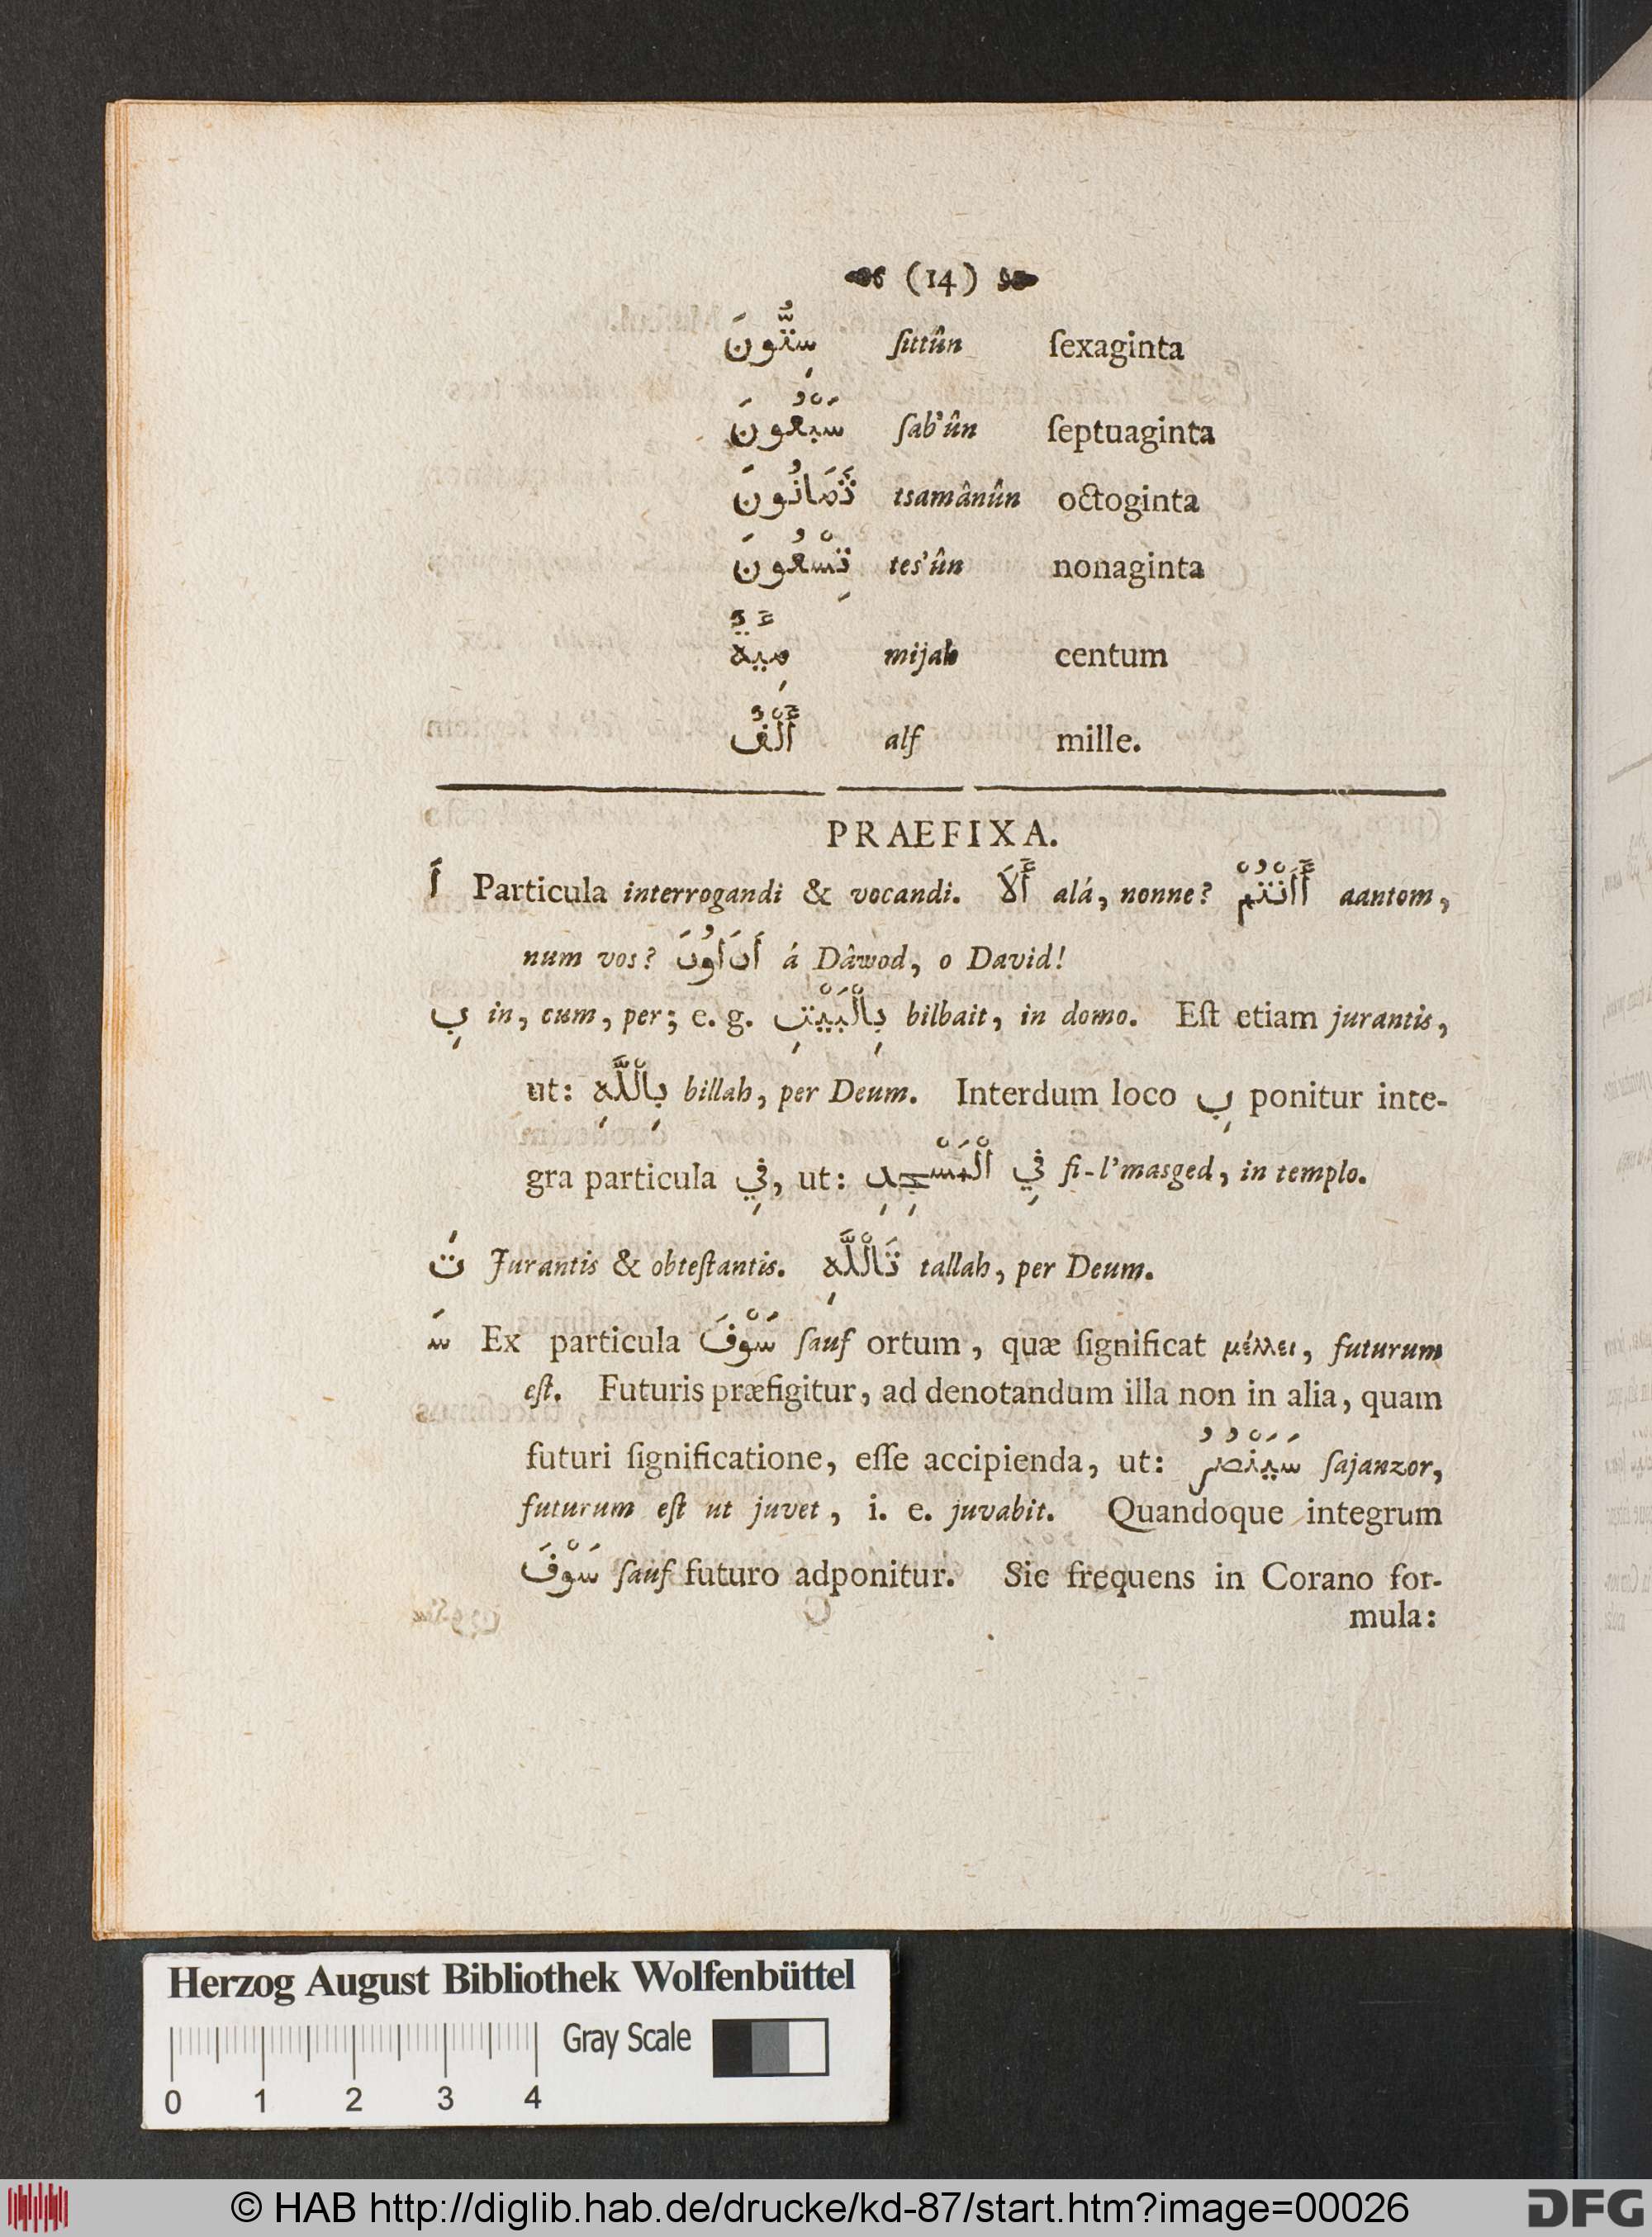 (14)
سِتُّونَ ſittûn ſexaginta
سَبْعُونَ ſab'ûn ſeptuaginta
ثَمَانُونَ tsamânûn octoginta
تِسْعُونَ tes'ûn nonaginta
مِيَّةٌ mijah centum
أَلْفٌ alf mille.
PRAEFIXA.
أَ Particula interrogandi & vocandi. أَلاَ alá, nonne? أَأَنْتُمْ aantom,
num vos? أَدَاوُدَ á Dâwod, o David!
بِ in, cum, per; e. g. بِالْبَيْتِ bilbait, in domo. Eſt etiam jurantis,
ut: بِاللَّهِ billah, per Deum. Interdum loco بِ ponitur inte-
gra particula فِي, ut: فِي الْمَسْجِدِ fi-l'masged, in templo.
تَ Jurantis & obteſtantis. تَاللَّهِ tallah, per Deum.
سَ Ex particula سَوْفَ ſauf ortum, quæ ſignificat μέλλει, futurum
eſt. Futuris præfigitur, ad denotandum illa non in alia, quam
futuri ſignificatione, eſſe accipienda, ut: سَيَنْصُرُ ſajanzor,
futurum eſt ut juvet, i. e. juvabit. Quandoque integrum
سَوْفَ ſauf futuro adponitur. Sic frequens in Corano for-
mula:
Herzog August Bibliothek Wolfenbüttel
Gray Scale
0 1 2 3 4
© HAB http://diglib.hab.de/drucke/kd-87/start.htm?image=00026
DFG